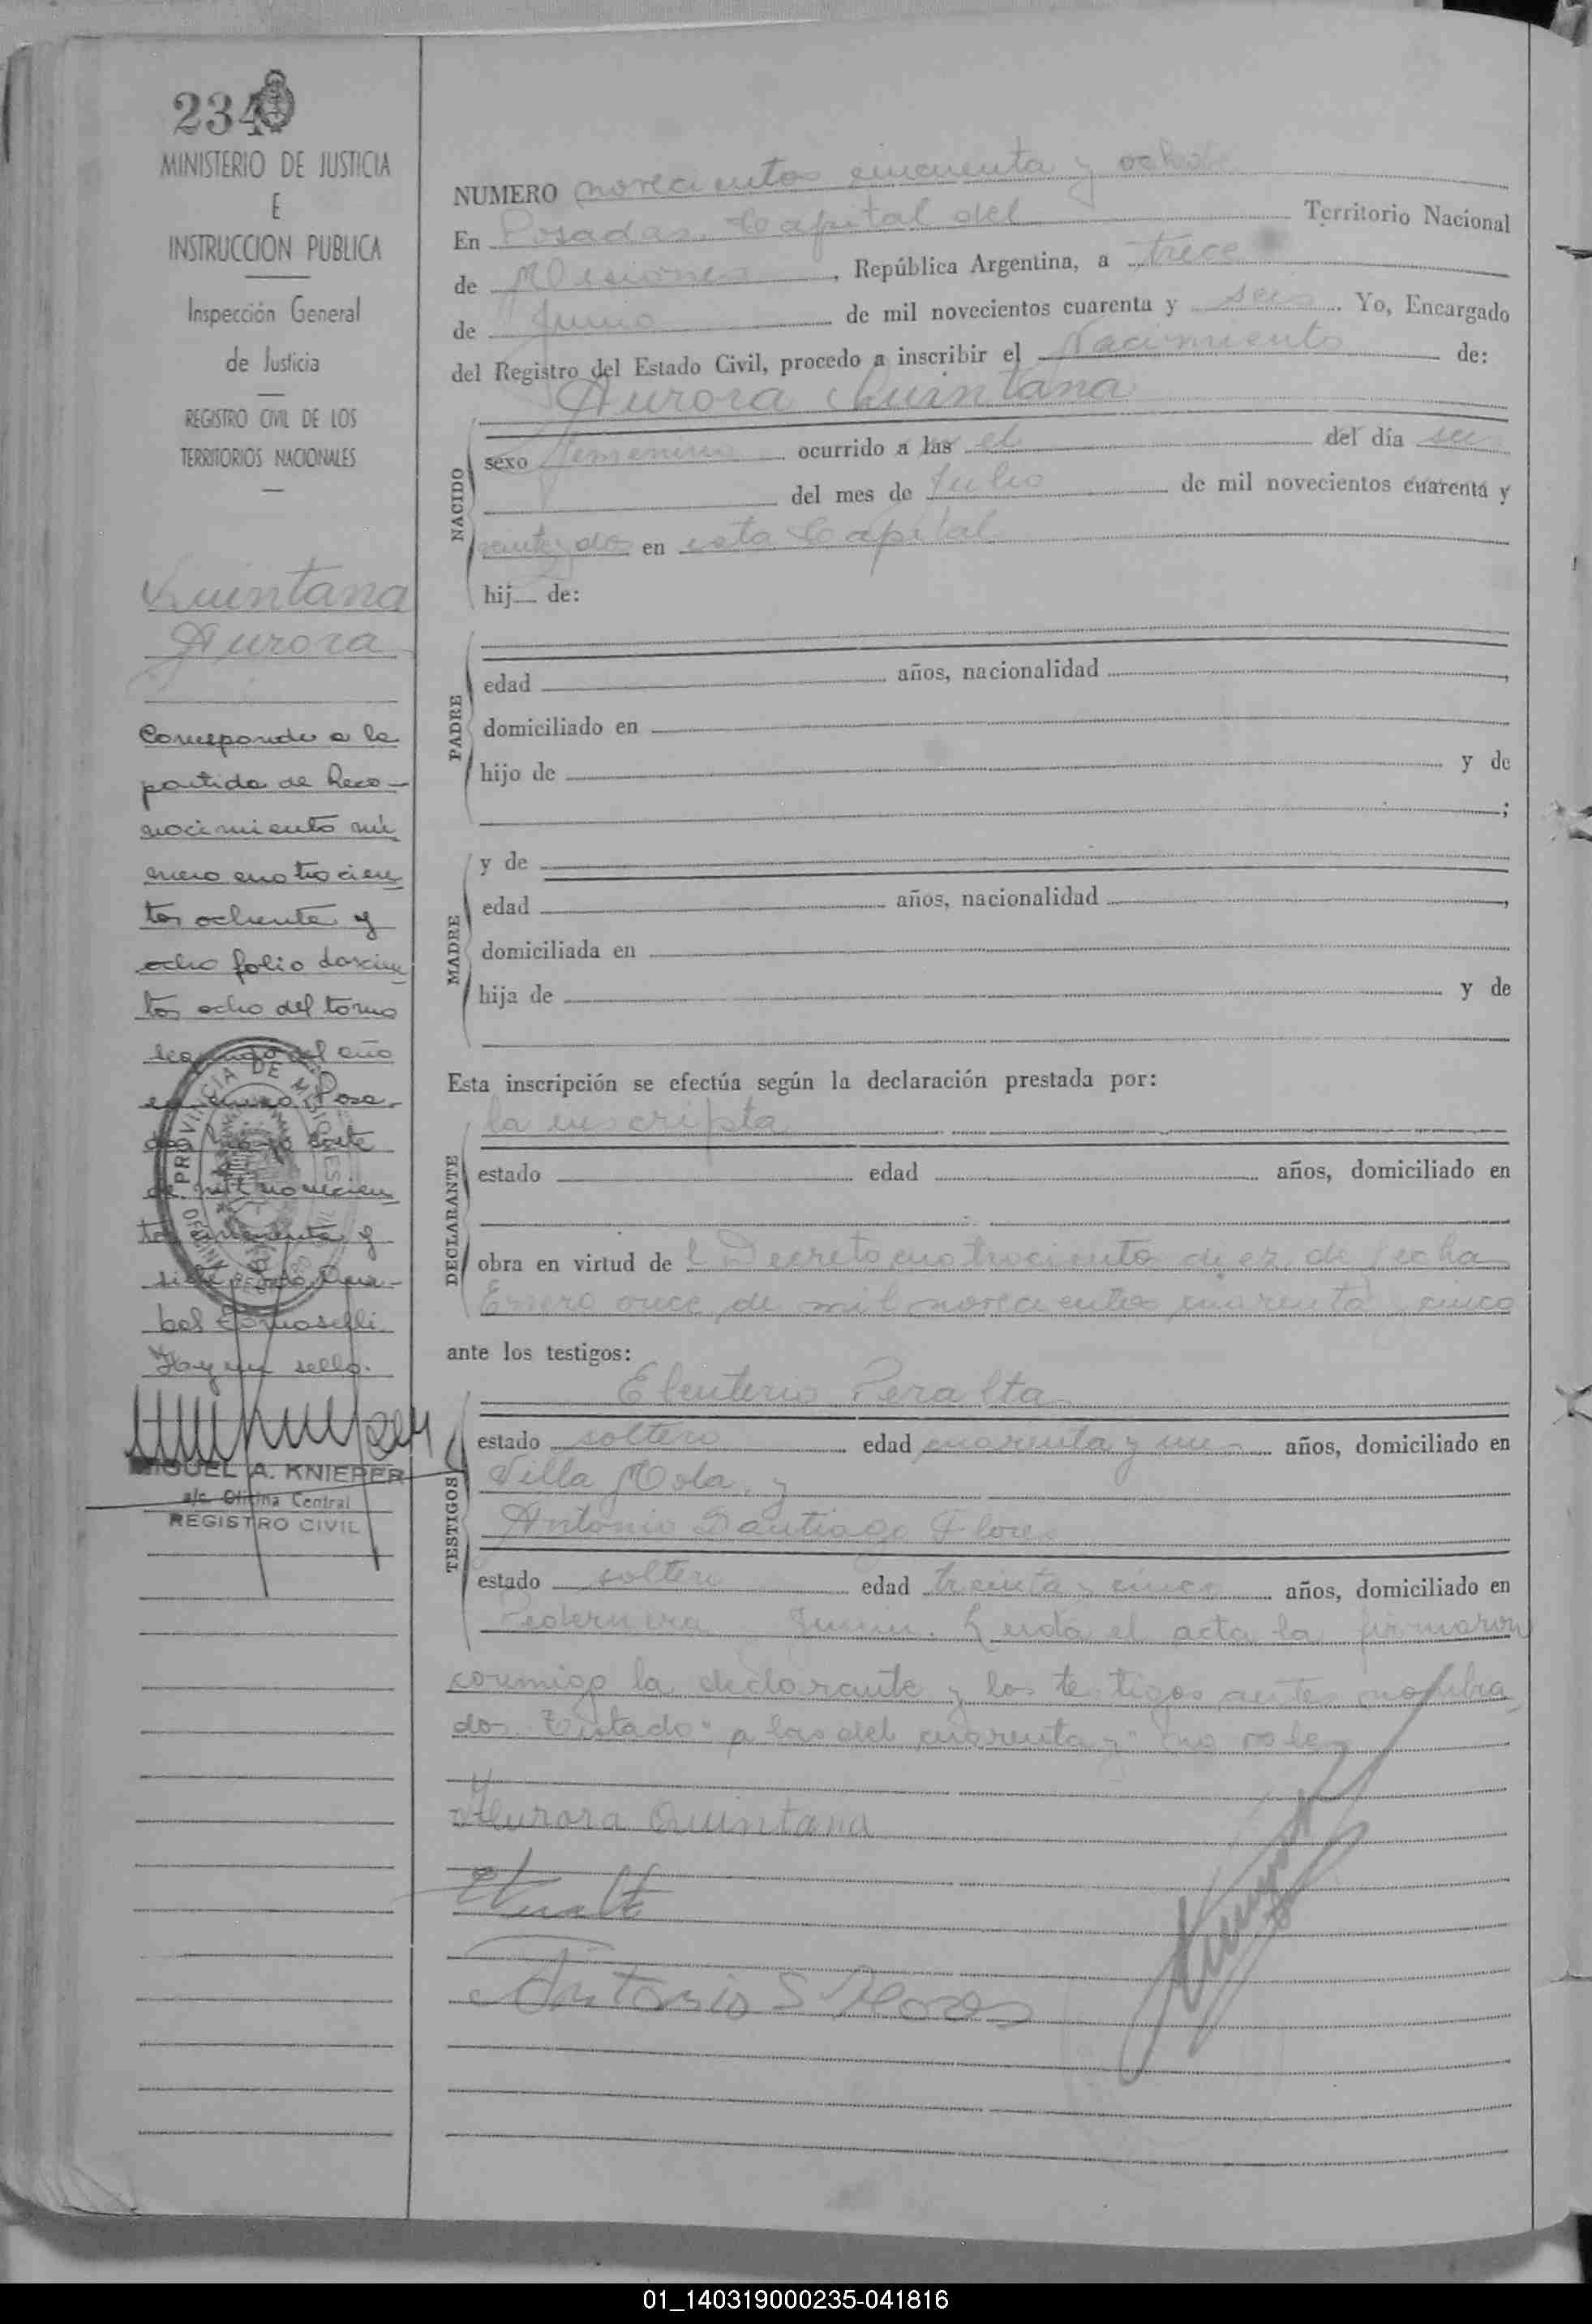 234
MINISTERIO DE JUSTICIA
E
INSTRUCCION PUBLICA
Inspección General
de Justicia
REGISTRO CIVIL DE LOS
TERRITORIOS NACIONALES
Quintana
Aurora
Corresponde a la
partida de Reco-
nocimiento nú
mero cuatrocien
tos ochenta y
ocho folio doscien
tos ocho del tomo
segundo del año
en curso. Posa-
das
de mil novecien
tos cuarenta y
siete
bal Tomaselli
Hay un sello.
PROVINCIA DE MISIONES
MIGUEL A. KNIEPER
a/c. Oficina Central
REGISTRO CIVIL
NUMERO novecientos cincuenta y ocho
En Posadas, Capital del Territorio Nacional
de Misiones, República Argentina, a trece
de Junio de mil novecientos cuarenta y seis. Yo, Encargado
del Registro del Estado Civil, procedo a inscribir el Nacimiento de:
Aurora Quintana
NACIDO
sexo femenino ocurrido a las el del día seis
del mes de Julio de mil novecientos cuarenta y
veinte y dos en esta Capital
hij de:
PADRE
edad años, nacionalidad ,
domiciliado en
hijo de y de
;
MADRE
y de
edad años, nacionalidad ,
domiciliada en
hija de y de
Esta inscripción se efectúa según la declaración prestada por:
DECLARANTE
la inscripta
estado edad años, domiciliado en
obra en virtud de l Decreto cuatrocientos diez de fecha
Enero once de mil novecientos cuarenta y cinco
ante los testigos:
TESTIGOS
Eleuterio Peralta
estado soltero edad cuarenta y un años, domiciliado en
Villa Mola, y
Antonio Santiago Flores
estado soltero edad treinta y cinco años, domiciliado en
Pedernera Junin. Leida el acta la firmaron
conmigo la declarante y los testigos antes nombra
dos. Testado "a las del cuarenta y" no vale
Aurora Quintana
EPeralta
Antonio S Flores
01_140319000235-041816